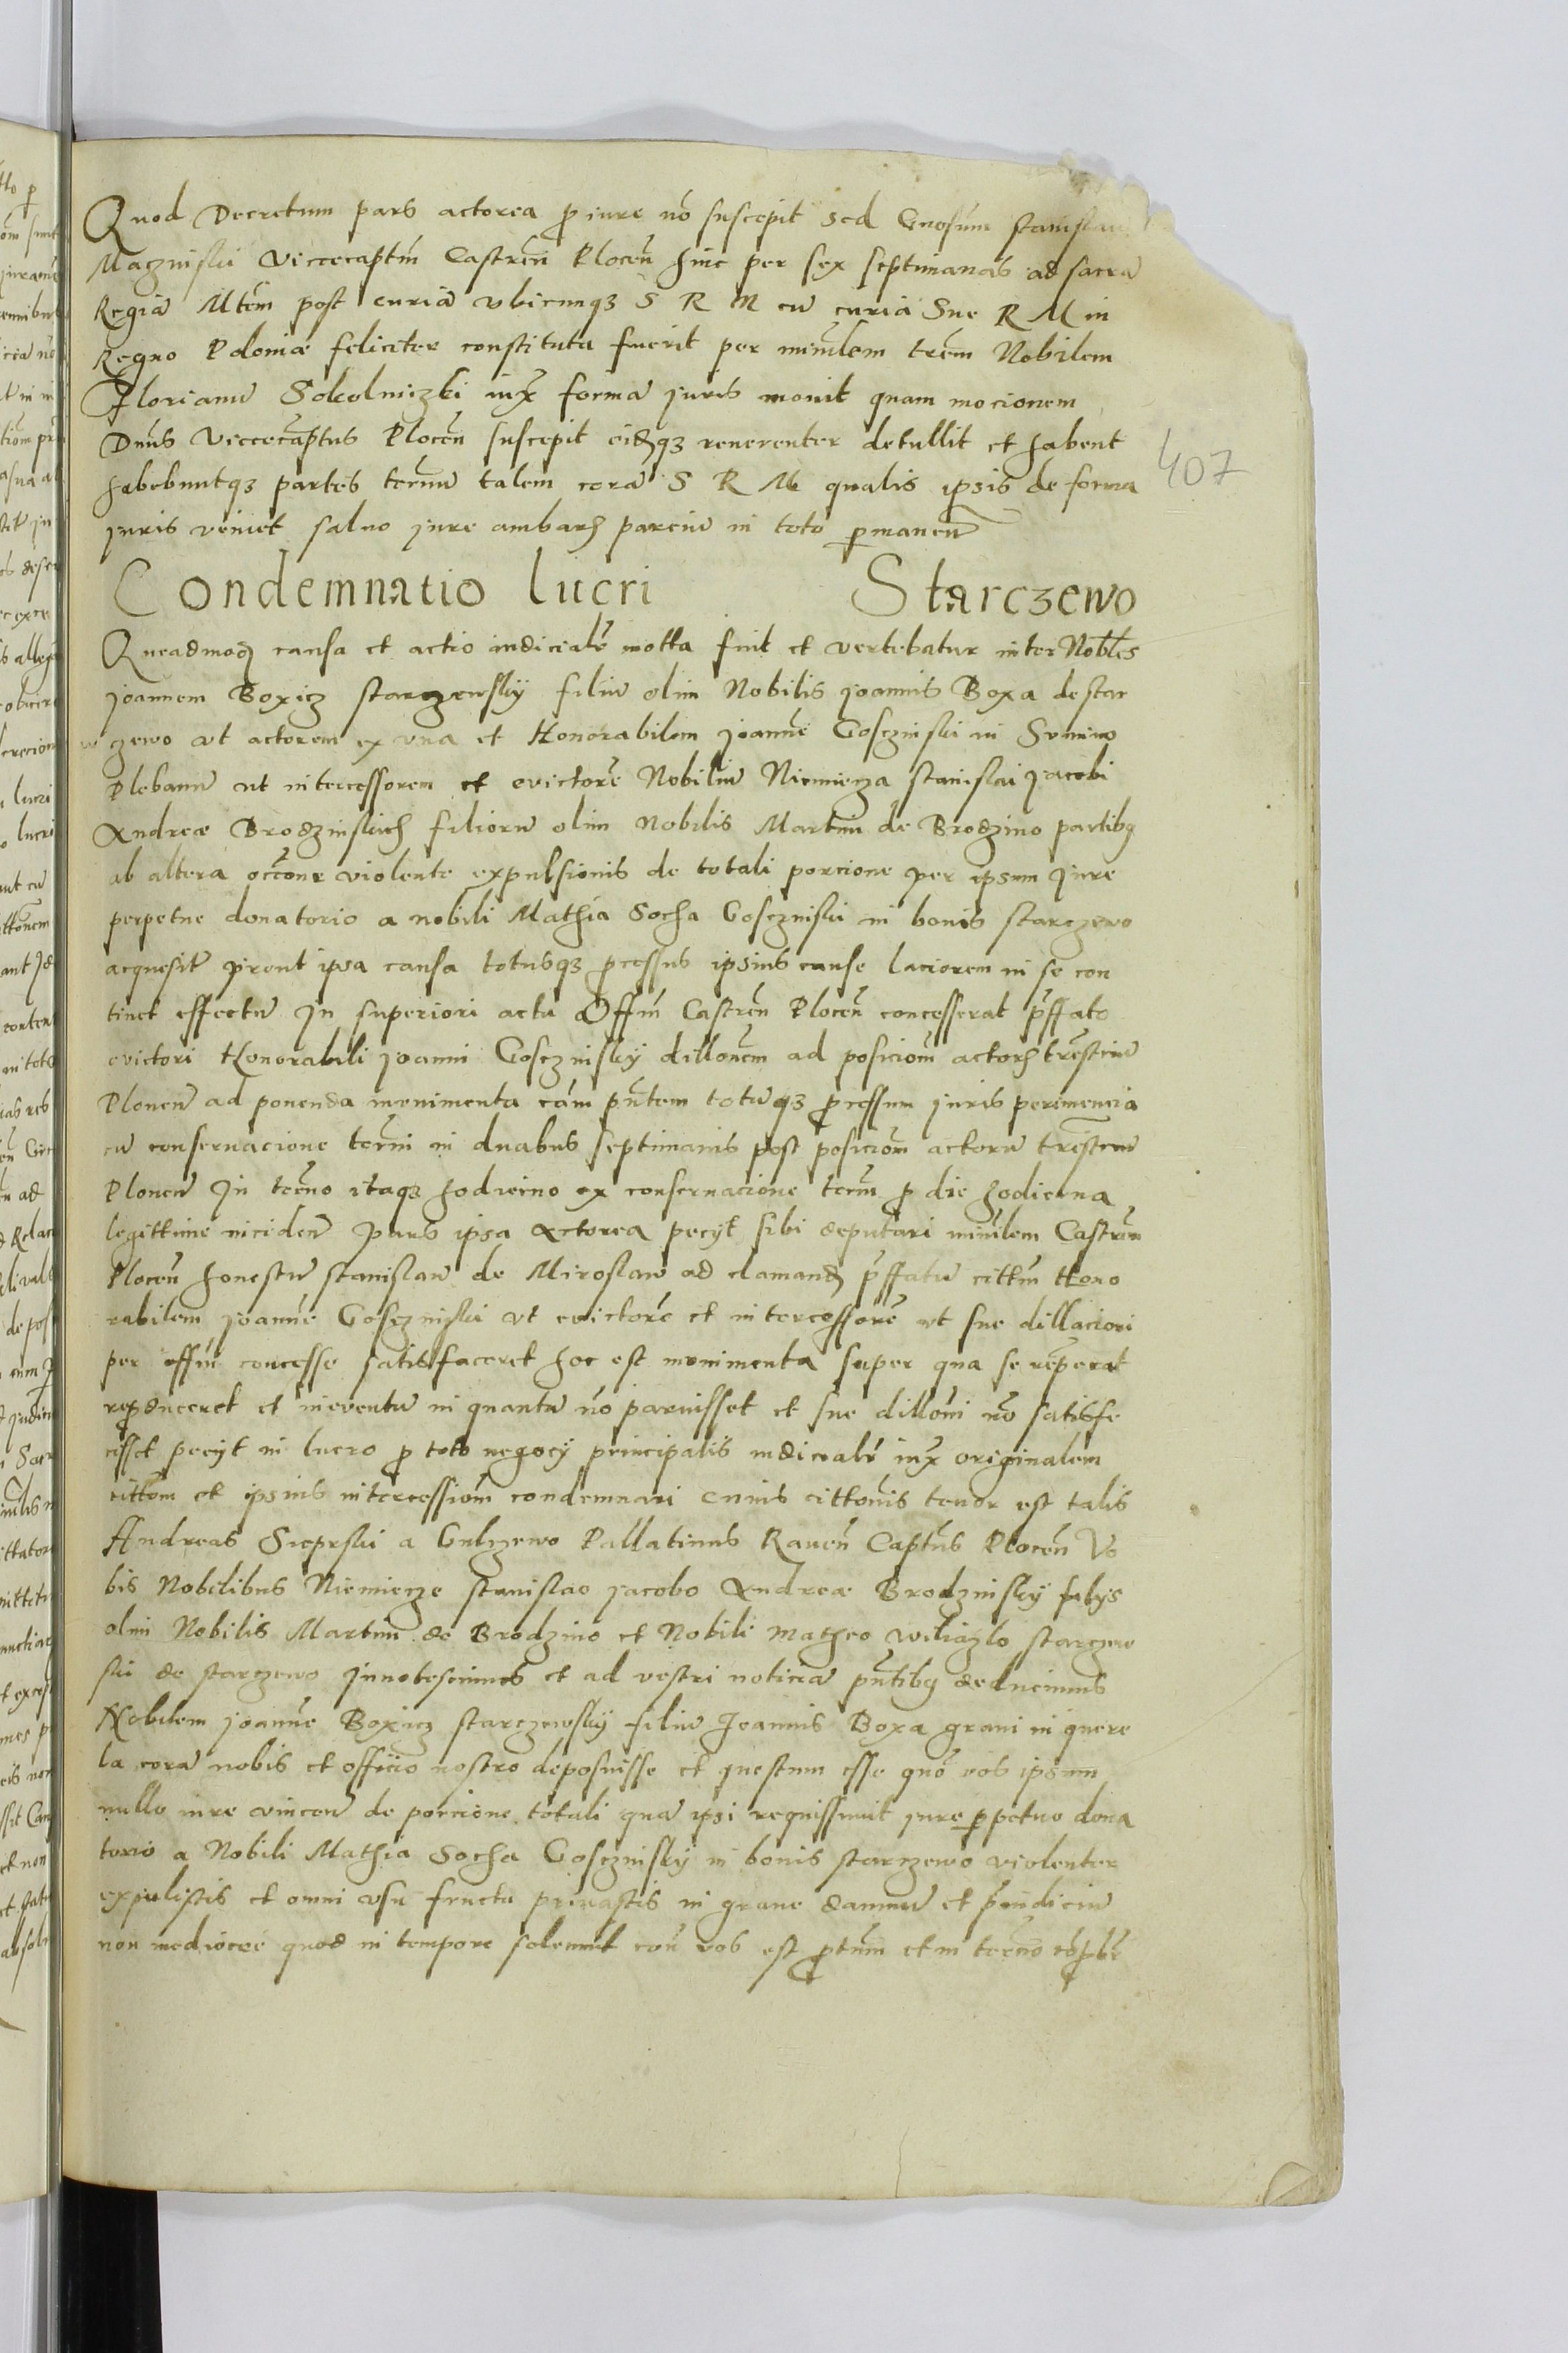 Quod Decretum pars actorea p iure nō suscepit sed Gnosum stanislau
Maczniski Viccecaptm Castren Plocen hinc per sex septimanas ad sacra
Regiā Mtem post curiā vbicunqz S R M cū curia Sue R M in
Regno Poloniæ feliciter constituta fuerit per minlem trem Nobilem
Florianū Sokolniczki iux formā juris monit quam mocionem
Dnus Viccecaptus Plocen suscepit eidqz reuerenter detullit et habent
habebuntqz partes termū talem corā S R M qualis ipsis de forma
juris veniet saluo jure ambarū parciū in toto pmanen
407
Condemnatio lucri Starczewo
Queadmod causa et actio indiciale motta fuit et vertebatur inter Nobles
joannem Boxicz starczewsky filiū olim Nobilis joannis Boxa de star
czewo vt actorem ex vna et Honorabilem joannē Gosczniski in
Plebanū vt intercessorem et evictorē Nobiliū Niemierza stanislai jacobi
Andreæ Brodzinskich filiorū olim nobilis Martini de Brodzino partibq
ab altera occone violente expulsionis de totali porcione per ipsum jure
perpetue donatorio a nobili Mathia Socha Gosczniski in bonis starczewo
acquesit prout ipsa causa totusqz pcessus ipsius cause laciorem in se con
tinet effectū In superiori actu Offm Castren Plocen concesserat pffato
evictori Honorabili joanni Goscznisky dillonem ad posiciom actorū trestriū
Plonen ad ponenda menimenta cām pntem totūqz pcessum juris perimencia
cū conseruacione termi in duabus septimanis post posiciom actorū trestriū
Plonen In termo itaqz hodierno ex conseruacione term p die hodierna
legittime inciden Pars ipsa Actorea pecyt sibi deputari minlem Castren
Plocen honestū stanislaū de Miroslaw ad clamand pffatū cittm Hono
rabilem joannē Gosczniski vt evictorē et intercessorē vt sue dillacioni
per offm concesse satisfaceret hoc est monimenta super qua se
repduceret et in eventū in quantū nō paruisset et sue dilloni nō satisfe
cisset pecyt in lucro p toto negocy principalis indiciale iux originalem
cittom et ipsius intercessiom condemnari cuius cittonis tenor est talis
Andreas Sieprski a Gulczewo Pallatinus Rauen Captus Plocen Vo
bis Nobilibus Niemierze stanislao jacobo Andreæ Brodzinsky filys
olim Nobilis Martini de Brodzino et Nobili Matheo starczew
ski de starczewo Innotescimus et ad vestri noticia pntibq deducimus
Nobilem joannē Boxicz starczewsky filiū Joannis Boxa graui in quere
la corā nobis et officio nostro deposuisse et questum esse quō vos ipsum
nullo iure vincen de porcione totali qua ipsi jure ppetuo dona
torio a Nobili Mathia Socha Gosczniski in bonis starczewo violenter
expulistis et omni vsu fructu priuastis in graue damnū et pindiciū
non mediocre quod in tempore solemnit con vos est ptum et in termo